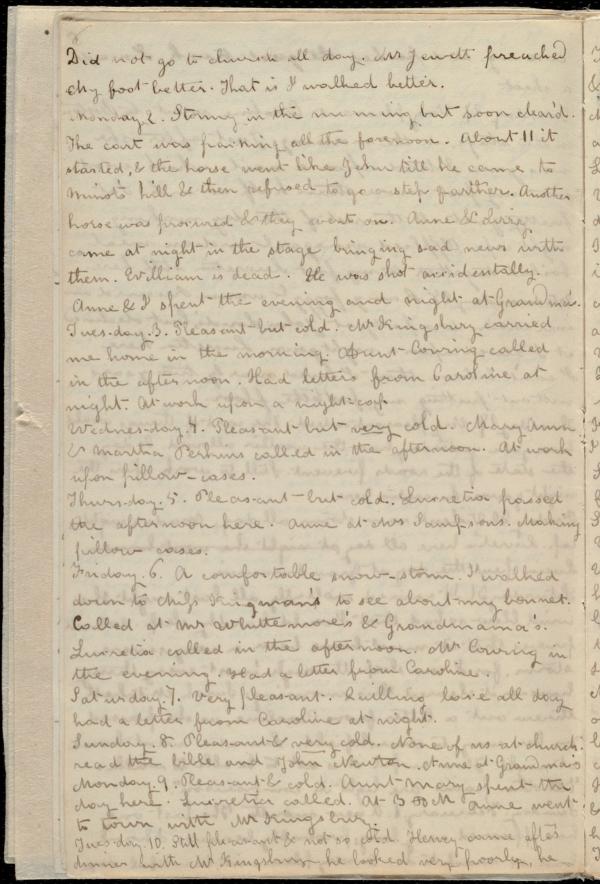 Did not go to church all day. Mr Jewett preached
My foot better. That is I walked better.
Monday 2. Stormy in the morning but soon clear'd.
The cart was packing all the forenoon. About 11 it
started, & the horse went like Jehu till he came to
Minot's hill & then refused to go a step farther. Another
horse was procured & they went on. Anne &
came at night in the stage bringing sad news with
them. William is dead. He was shot accidentally.
Anne & I spent the evening and night at Grandma's.
Tues-day 3. Pleasant but cold. Mr Kingsbury carried
me home in the morning. Aunt Cowing called
in the afternoon. Had letters from Caroline at
night. At work upon a night-cap
Wednes-day 4. Pleasant but very cold. Mary Ann
& Martha Perkins called in the afternoon. At work
upon pillow-cases.
Thurs-day 5. Pleas-ant but cold. Lucretia passed
the afternoon here. Anne at Mrs Sampsons. Making
pillow cases.
Friday 6. A comfortable snow-storm. I walked
down to Miss Kingman's to see about my bonnet.
Called at Mr Whittemore's & Grandmama's.
Lucretia called in the afternoon. Mr Cowing in
the evening. Had a letter from Caroline.
Saturday 7. Very pleasant. Quilling lace all day
had a letter from Caroline at night.
Sunday 8. Pleasant & very cold. None of us at church.
read the bible and John Newton. Anne at Grandma's
Monday 9. Pleasant & cold. Aunt Mary spent the
day here. Lucretia called. At 3 PM Anne went
to town with Mr Kingsbury.
Tues-day 10. Still pleasant & not so cold. Henry came after
dinner with Mr Kingsbury he looked very poorly, he